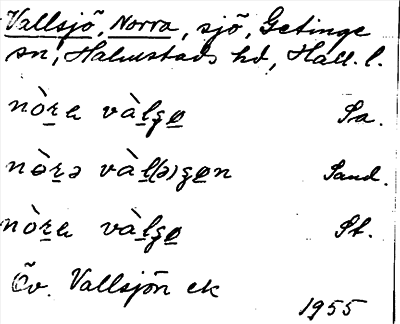 Vallsjö, Norra, sjö, Getinge
sn, Halmstads hd, Hall. l.
nò̱ṟa vàḻgo̱ Sa.
nò̱ṟə vàḻ(ə)go̱n Sand.
nò̱ṟa vàḻgo̱ St.
Öv. Vallsjön ek
1955